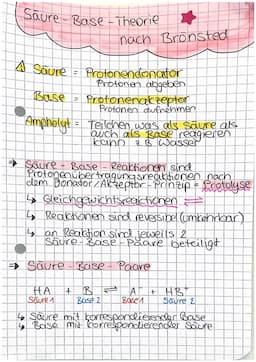 Säure-Base-Theorie
nach Brønsted
Säure = Protonendonator
Protonen abgeben
Base = Protonenakzeptor
Protonen aufnehmen
Ampholyt = Teilchen was als Säure als
auch als Base reagieren
kann z.B Wasser
⇒ Säure-Base-Reaktionen sind
Protonenübertragungsreaktionen nach
dem Donator/Akzeptor-Prinzip = Protolyse
↳ Gleichgewichtsreaktionen ⇌
↳ Reaktionen sind reversibel (umkehrbar)
↳ an Reaktion sind jeweils 2
Säure-Base-Paare beteiligt
⇒ Säure-Base-Paare
HA + B ⇌ A⁻ + HB⁺
Säure 1 Base 2 Base 1 Säure 2
↳ Säure mit korrespondierender Base
↳ Base mit korrespondierender Säure